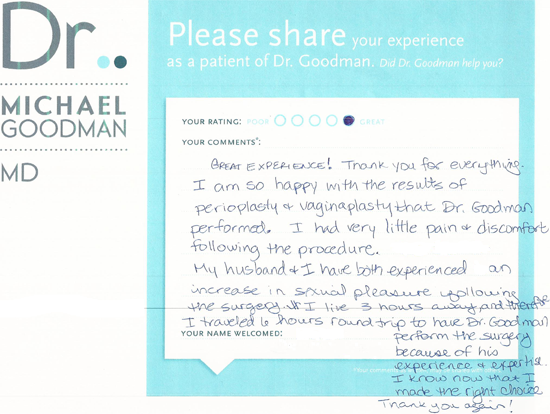 Dr..
MICHAEL
GOODMAN
MD
Please share your experience
as a patient of Dr. Goodman. Did Dr. Goodman help you?
YOUR RATING: POOR GREAT
YOUR COMMENTS*:
GREAT EXPERIENCE! Thank you for everything.
I am so happy with the results of
perioplasty & vaginaplasty that Dr. Goodman
performed. I had very little pain & discomfort
following the procedure.
My husband & I have both experienced an
increase in sexual pleasure following
the surgery. I live 3 hours away and therefore
I traveled 6 hours round trip to have Dr. Goodman
YOUR NAME WELCOMED:
perform the surgery
because of his
experience & expertise.
I know now that I
made the right choice
Thank you again!